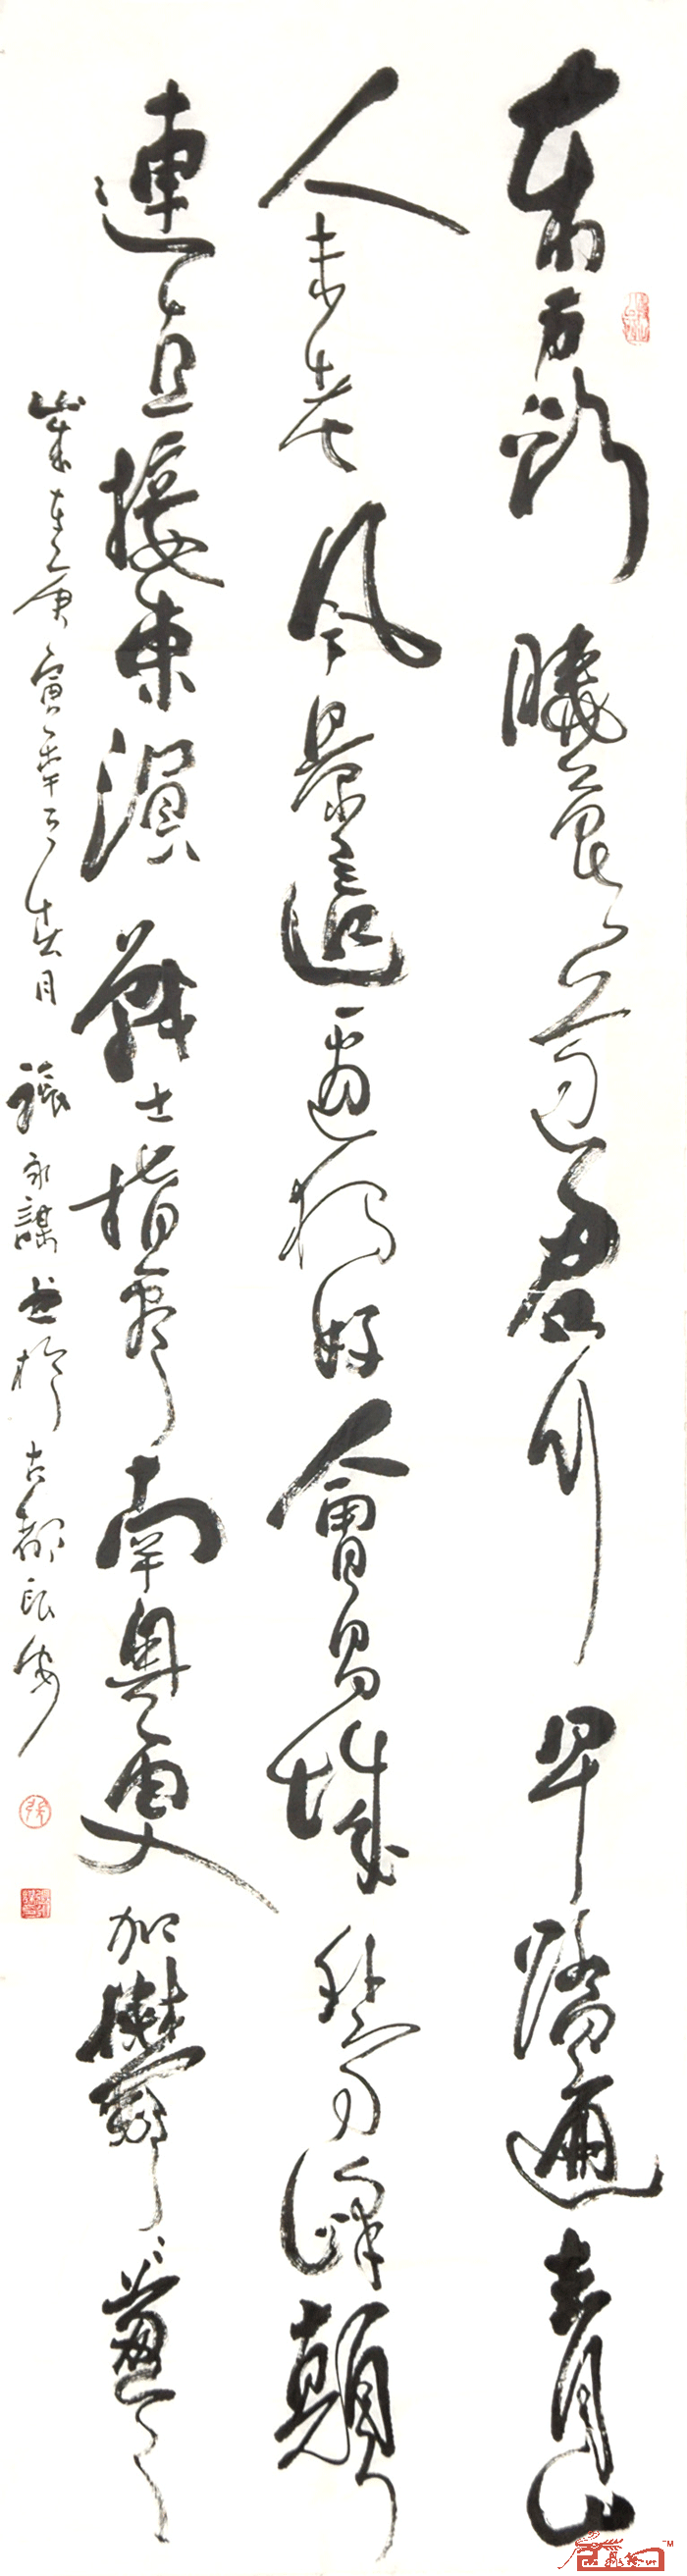 東方欲曉莫道君行早踏遍青山
人未老風景這邊獨好會昌城外高峰顛
連直接東溟戰士指看南粵更加鬱〻蔥〻
歲在庚寅年三春月張永謀書於古都長安